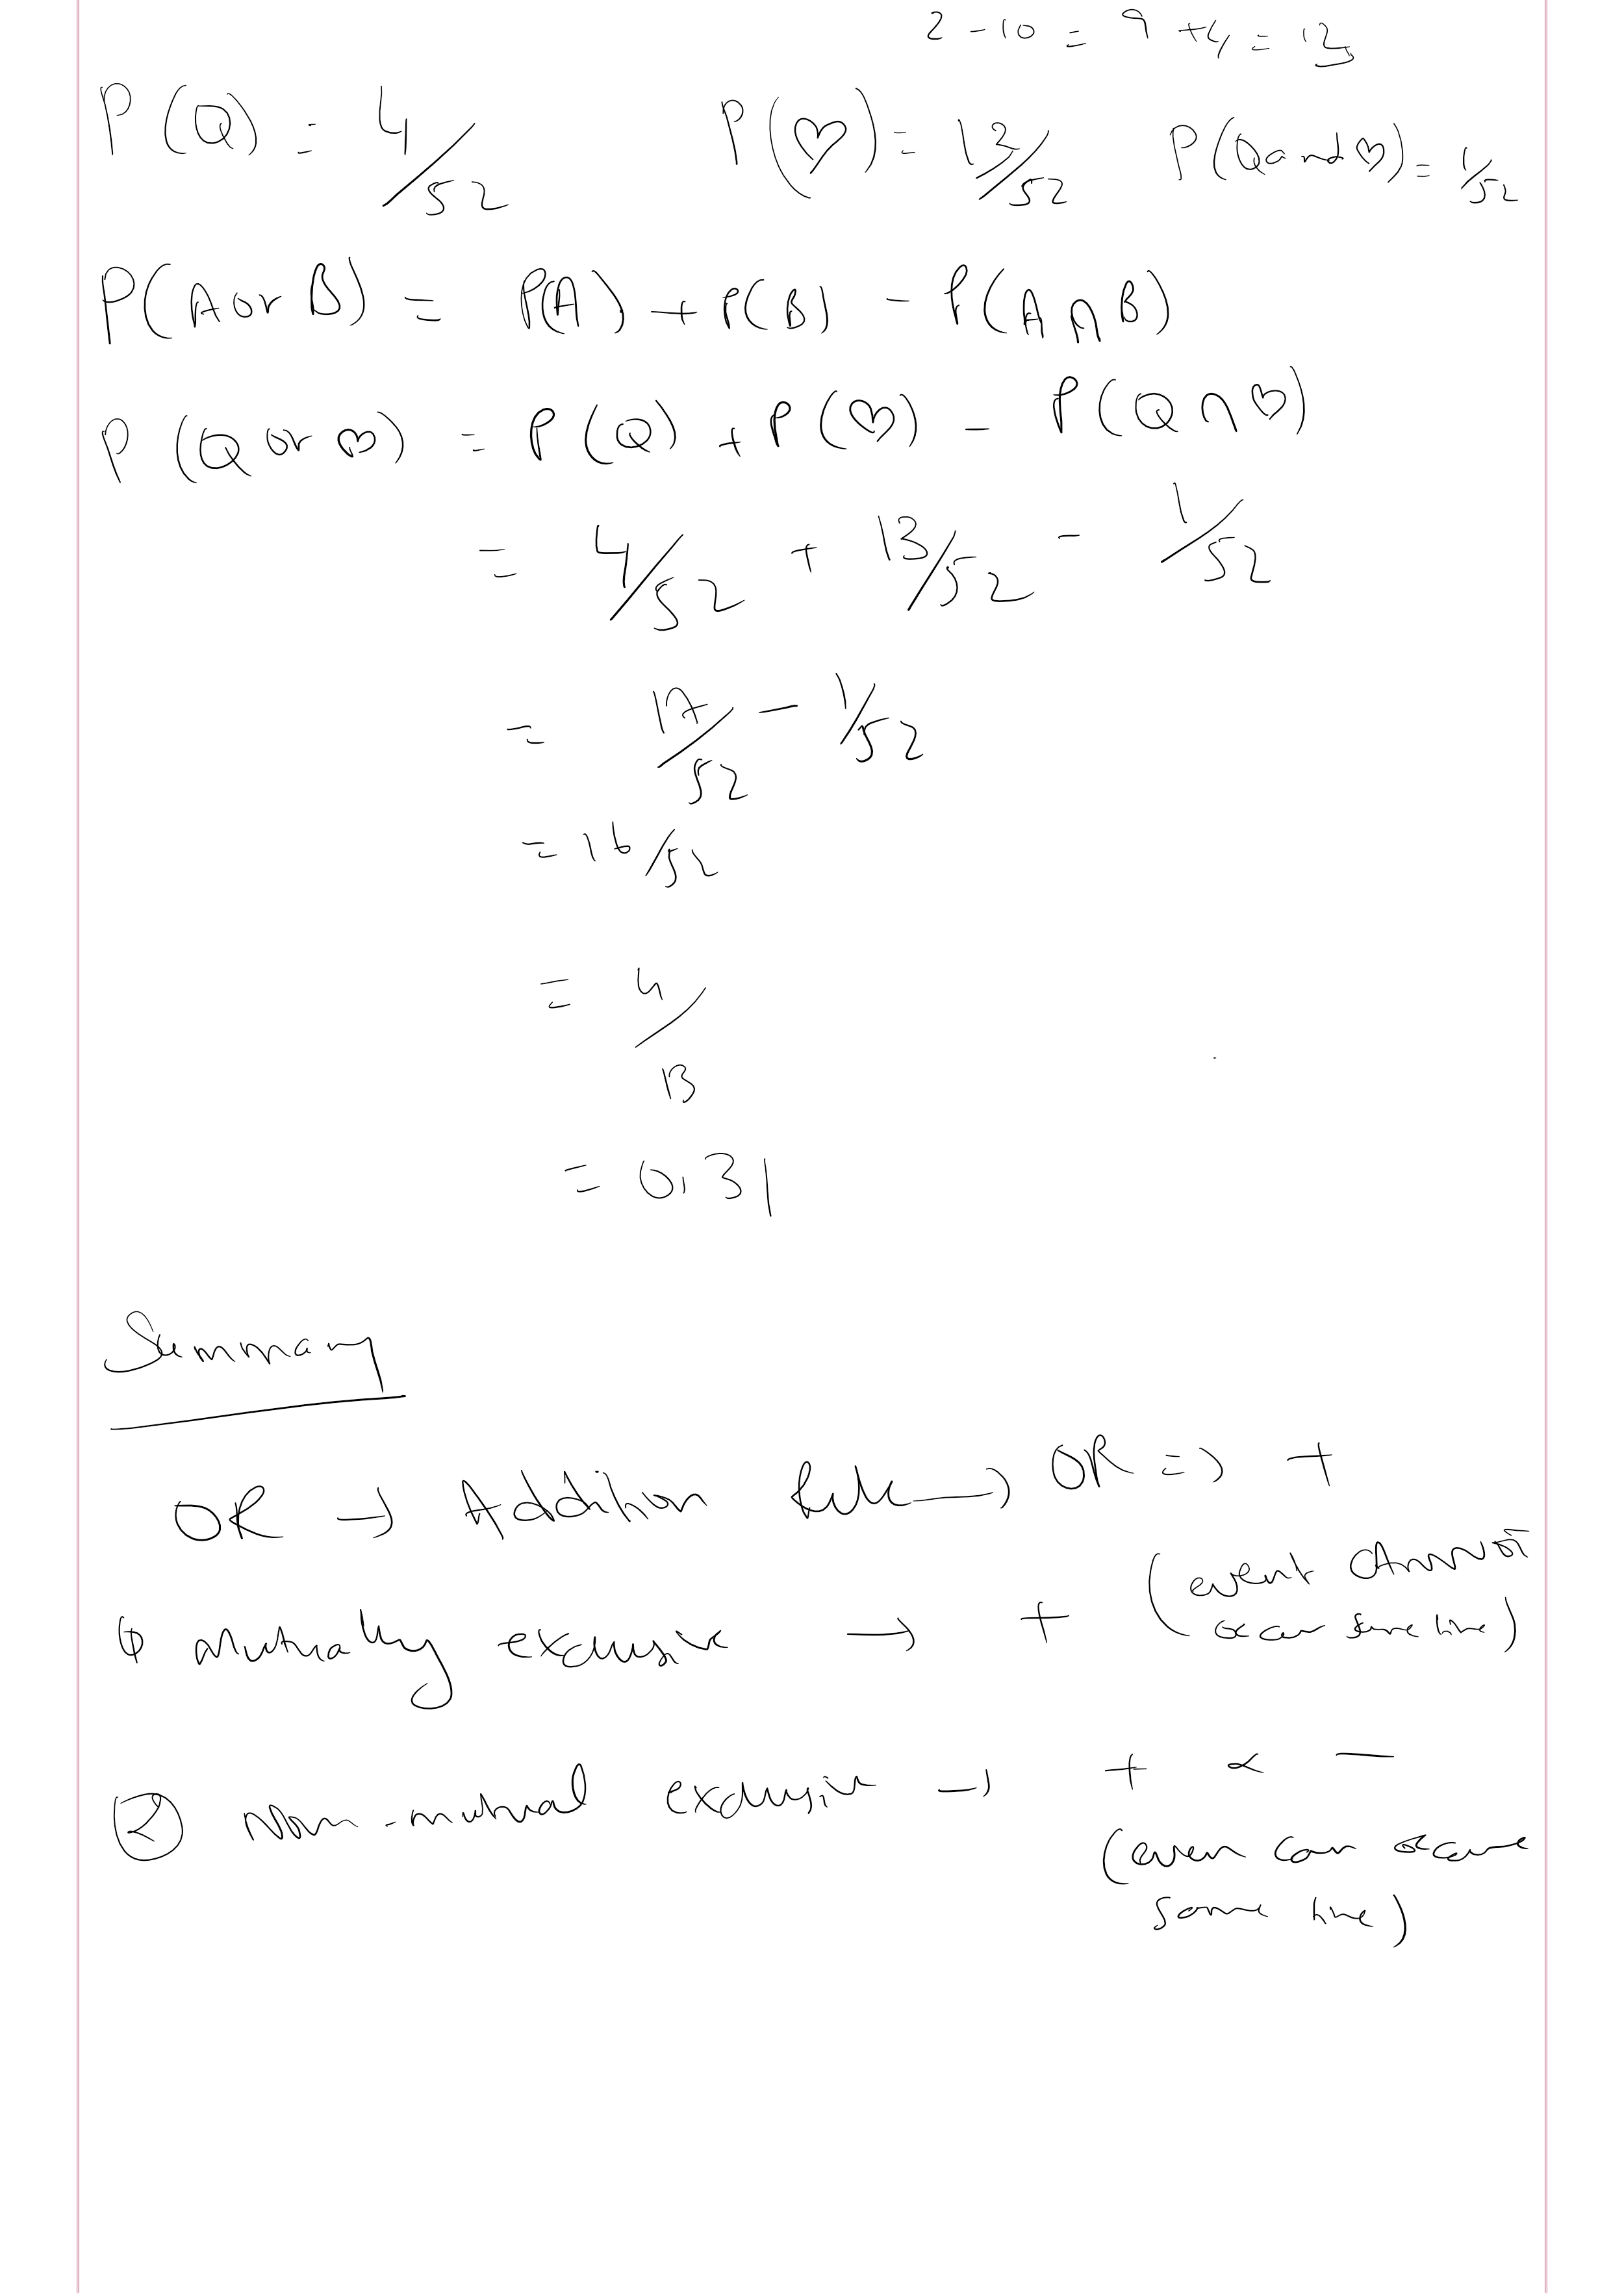 2 - 10 = 9 + 4 = 13
P(Q) = 4/52 P(♡) = 13/52 P(Q and ♡) = 1/52
P(A or B) = P(A) + P(B) - P(A ∩ B)
P(Q or ♡) = P(Q) + P(♡) - P(Q ∩ ♡)
= 4/52 + 13/52 - 1/52
= 17/52 - 1/52
= 16/52
= 4/13
= 0.31
Summary
OR → Addition Rule → OR => +
① mutually exclusive → + (event cannot
occur same time)
② Non-mutual exclusive → + & -
(even can occur
same time)